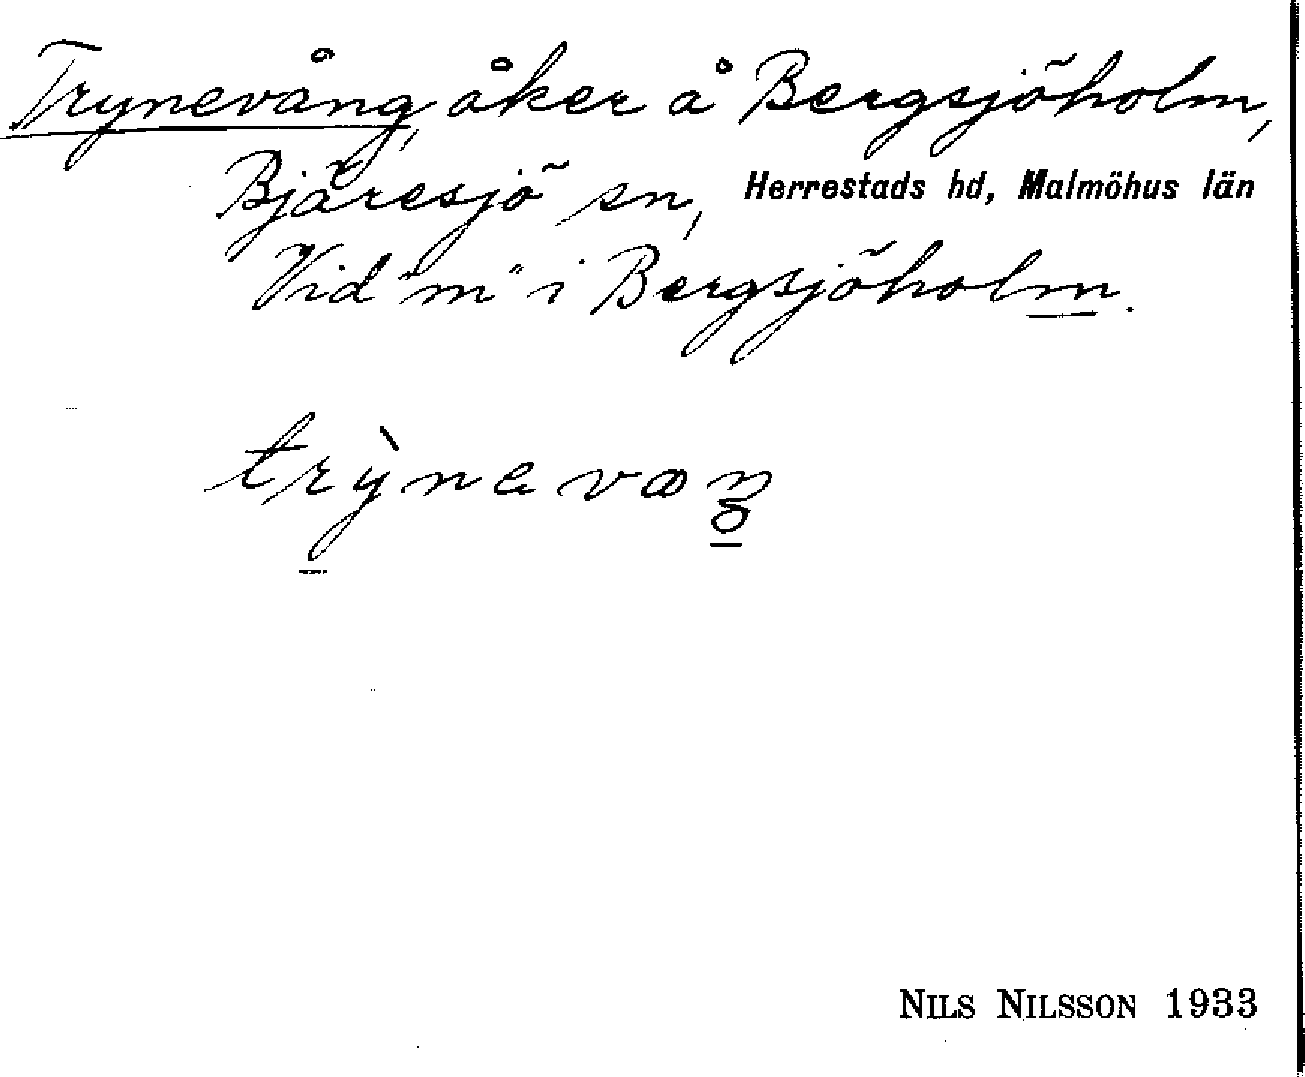 Trynevång, åker å Bergsjöholm,
Bjäresjö sn, Herrestads hd, Malmöhus län
Vid "m" i Bergsjöholm.
NILS NILSSON 1933